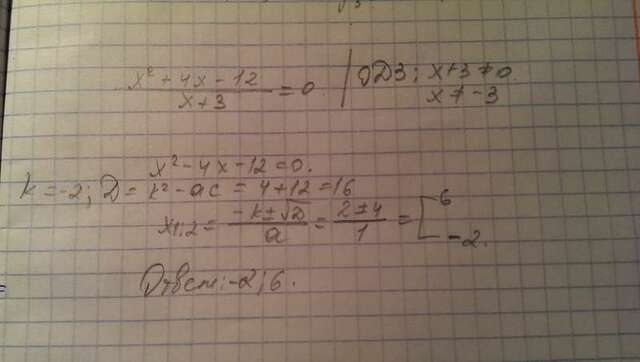 x² + 4x - 12 / x + 3 = 0 | ОДЗ: x+3 ≠ 0
x ≠ -3
x² - 4x - 12 = 0.
k = -2; D = k² - ac = 4 + 12 = 16
x1;2 = -k ± √D / a = 2 ± 4 / 1 = [ 6 -2.
Ответ: -2; 6.